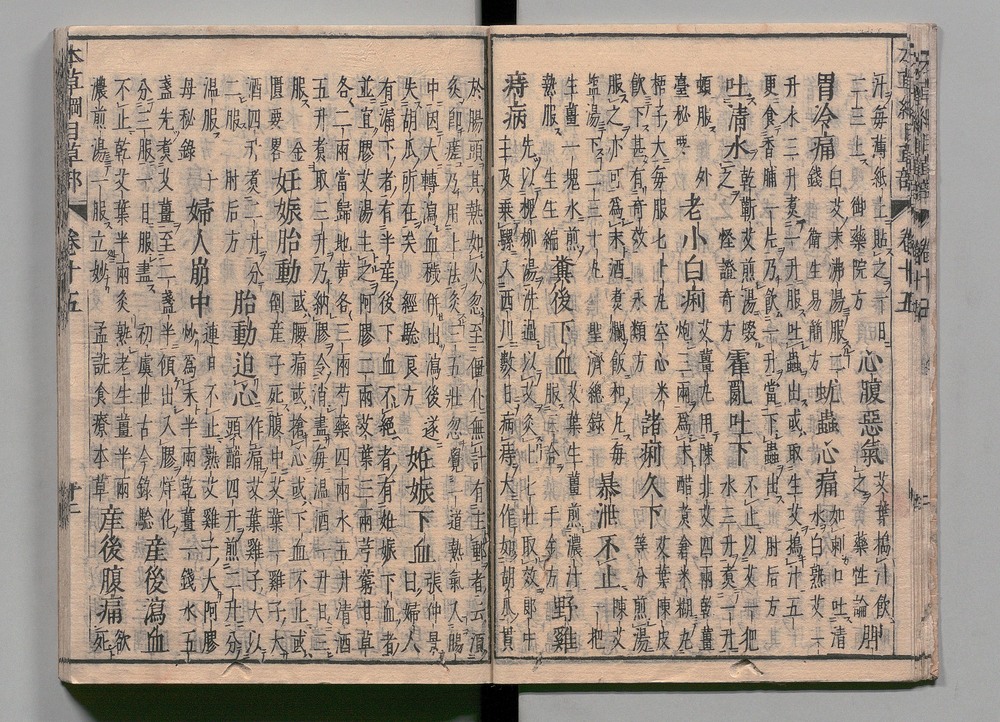 汗每薄紙上貼之一日
二三上 御藥院方 心腹惡氣 艾葉搗汁飲
之 藥性論 脾
胃冷痛 白艾末沸湯服二
錢 衛生易簡方 蚘蟲心痛 如刺口吐清
水白熟艾一
升水三升煮一升服吐蟲出或取生艾搗汁五
更食香脯一片乃飲一升當下蟲出 肘后方
口吐清水 乾蘄艾煎湯啜
之 怪證奇方 霍亂吐下 不止以艾一把
水三升煮一升
頓服 外
臺秘要 老小白痢 艾薑丸用陳北艾四兩乾薑
炮三兩爲末醋煮倉米糊丸
梧子大每服七十丸空心米
飲下甚有奇效 永類方 諸痢久下 艾葉陳
皮等分煎湯
服之亦可爲末酒煮爛飯和丸每
塩湯下二三十丸 聖濟總錄 暴泄不止 陳艾
一把
生薑一塊水煎
熱服 生生編 糞後下血 艾葉生薑煎濃汁
服三合 千金方 野雞
痔病 先以槐柳湯洗過以艾灸上七壯取效郎中
王及乗騾入西川數日病痔大作如胡瓜貫
於腸頭其熱如火忽至僵仆無計有主郵者云須
灸即瘥乃用上法灸三五壯忽覺一道熱氣入腸
中因大轉瀉血穢併出瀉後遂
失胡瓜所在矣 經驗良方 姙娠下血 張仲景
曰婦人
有漏下者有半産後下血不絕者有妊娠下血者
並宜膠艾湯主之阿膠二兩艾葉三兩芎藭甘草
各二兩當歸地黃各三兩芍藥四兩水五升清酒
五升煮取三升乃納膠令消盡每溫服一升日三
服 金
匱要略 妊娠胎動 或腰痛或搶心或下血不止或
倒産子死腹中艾葉一雞子大
酒四升煮二升分
二服 肘后方 胎動迫心 作痛艾葉雞子大以
頭醋四升煎二升分
溫服 子
母秘錄 婦人崩中 連日不止熟艾雞子大阿膠
炒爲末半兩乾薑一錢水五
盞先煮艾薑至二盞半傾出入膠烊化
分三服一日服盡 初虞世古今錄驗 産後瀉血
不止乾艾葉半兩灸熟老生薑半兩
濃煎湯一服立妙 孟詵食療本草 産後腹痛 欲
死
本草綱目草部 卷十五 十二